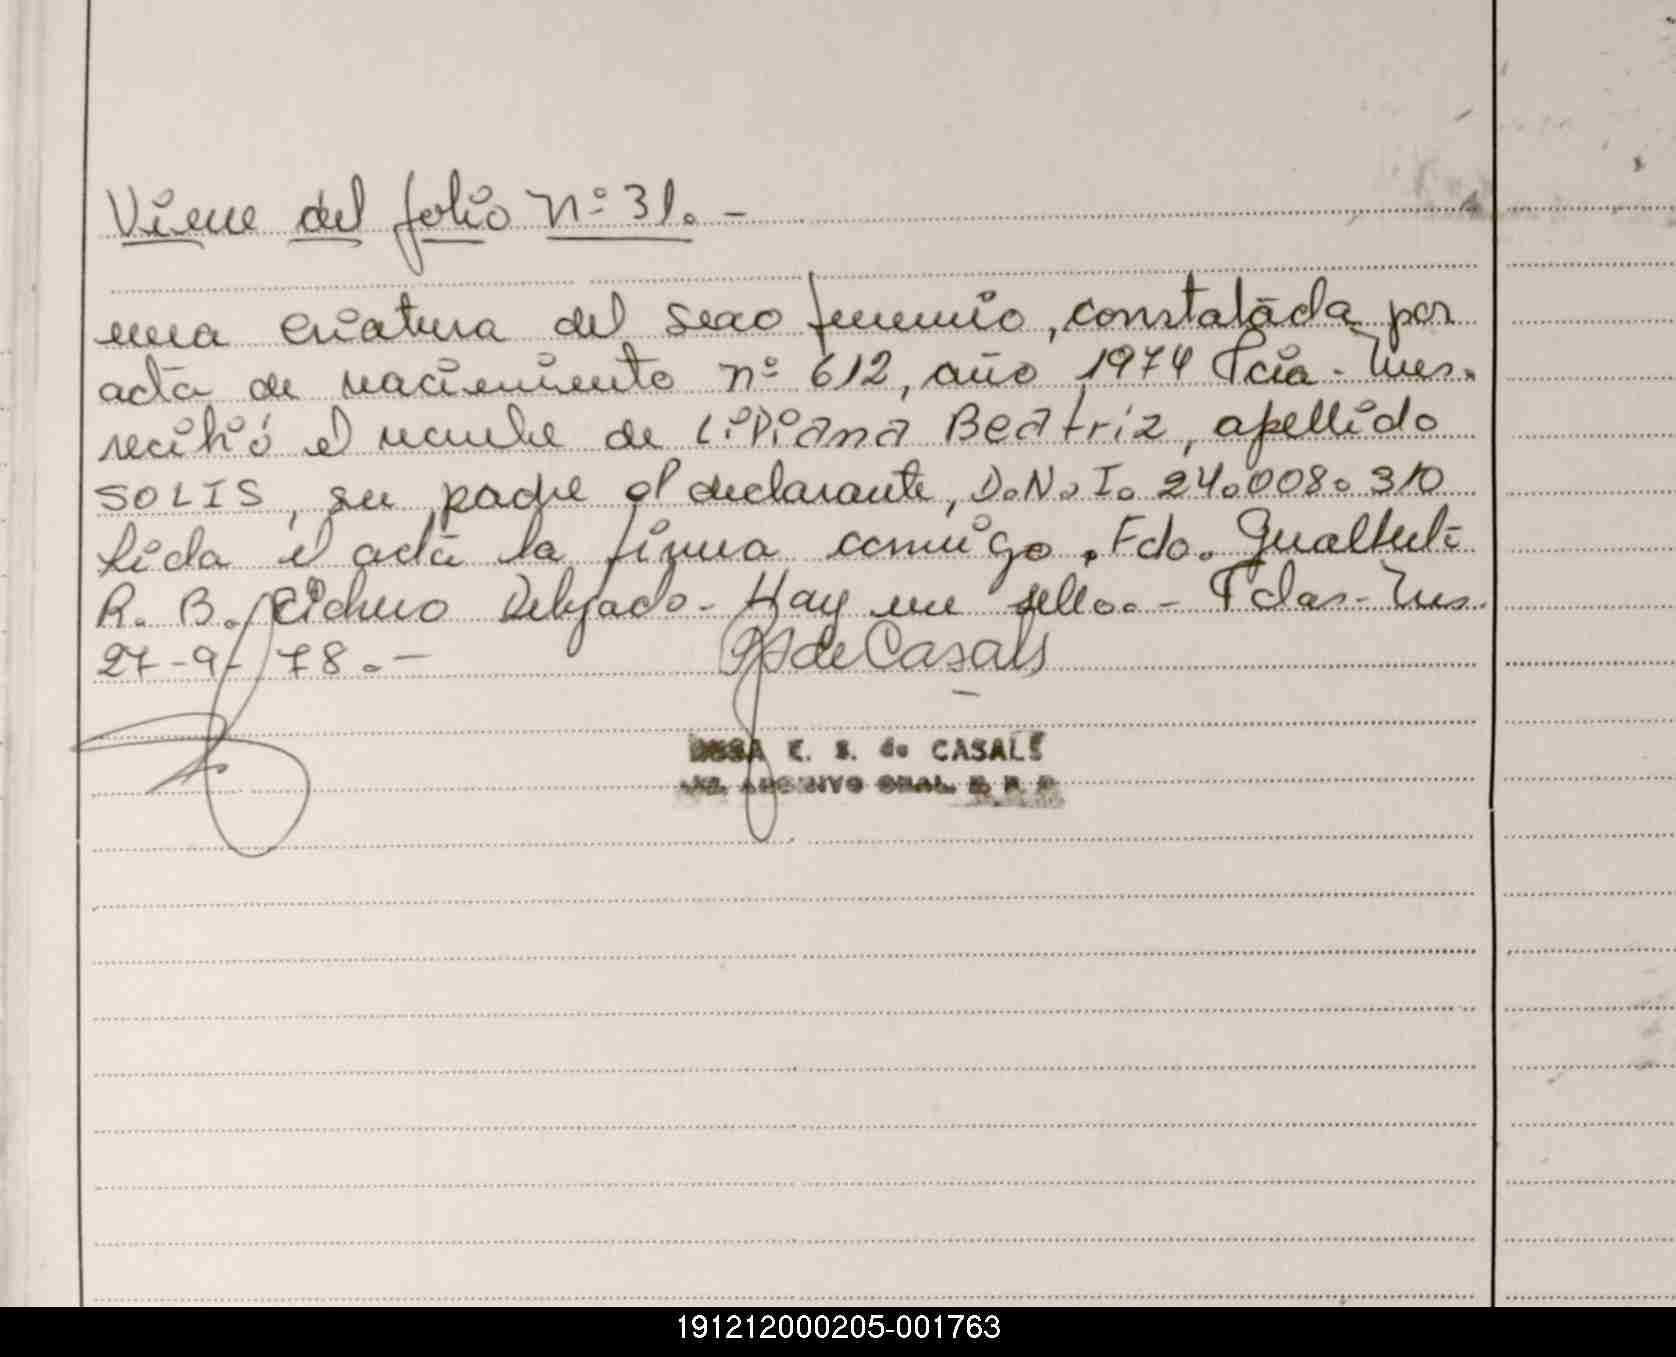 Viene del folio nº 31. -
una criatura del sexo femenino, constatada por
acta de nacimiento nº 612, año 1974 Pcia. Mnes.
recibió el nombre de LiDiana Beatriz, apellido
SOLIS, su padre el declarante, D.N.I. 24.008.310
Leida el acta la firma comigo. Fdo.
R. B. Delgado - Hay un sello. - Pdas - Mnes.
27-9-78. -
de Casals
E. S. de CASALS
ARCHIVO GRAL.
191212000205-001763